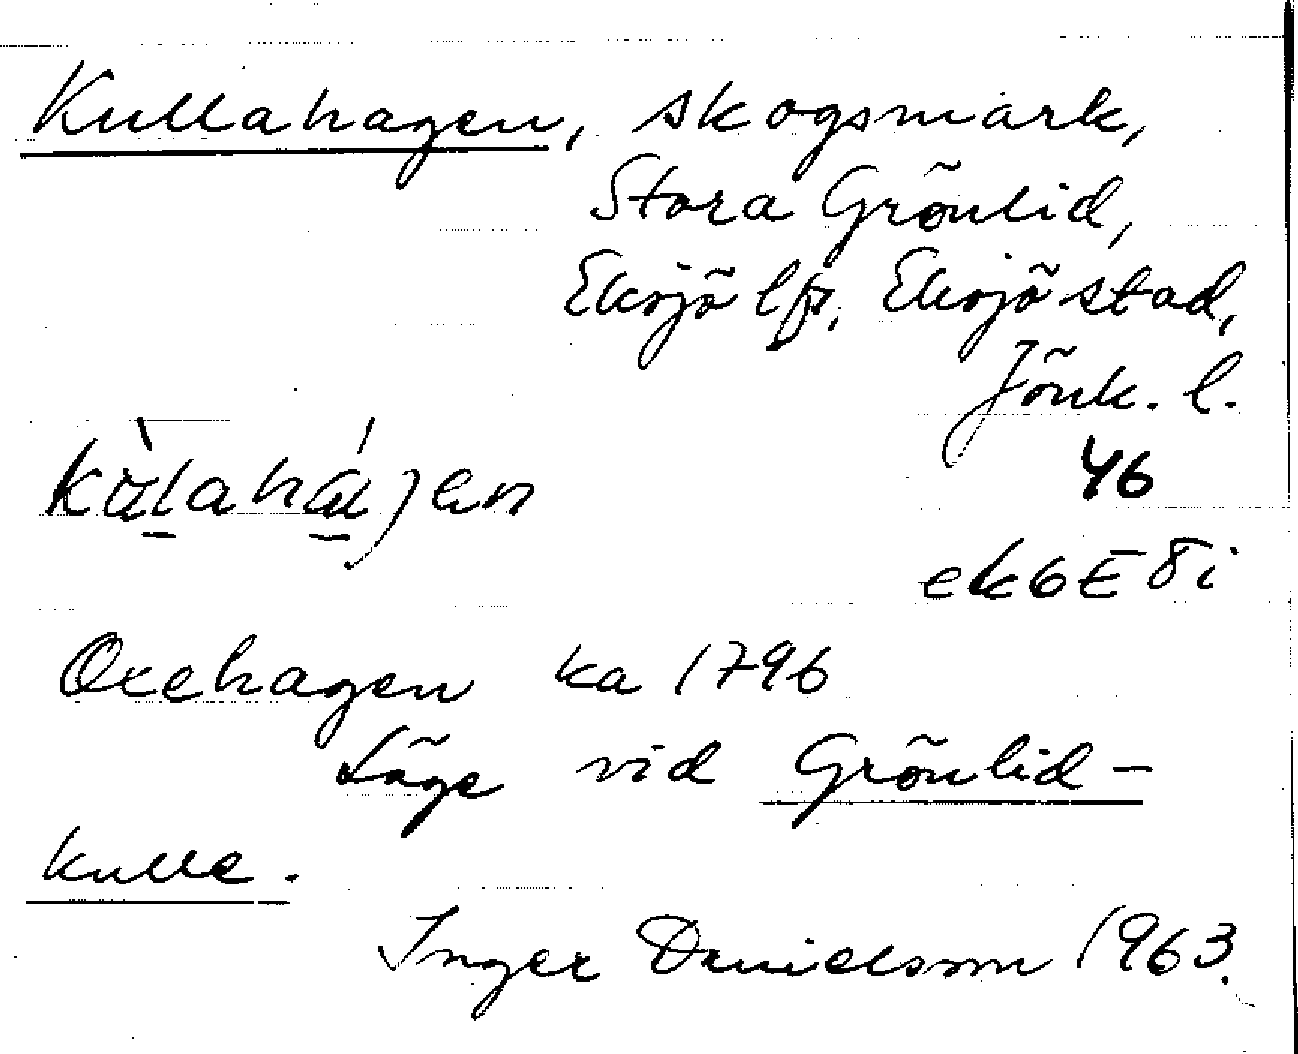 Kullahagen, skogsmark,
Stora Grönlid,
Eksjö lfs, Eksjö stad,
Jönk. l.
46
ek 6 E 8 i
Oxehagen ka 1796
Läge vid Grönlid-
kulle.
Inger Danielsson 1963.